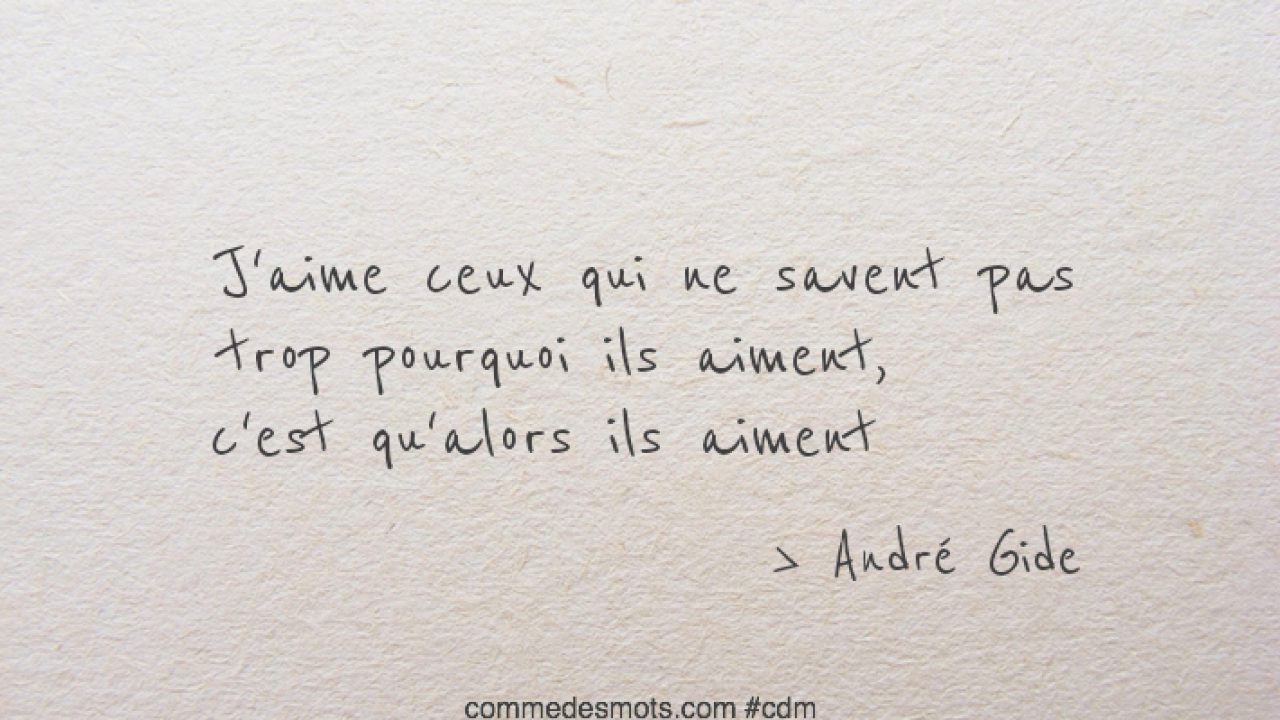 J'aime ceux qui ne savent pas
trop pourquoi ils aiment,
c'est qu'alors ils aiment
> André Gide
commedesmots.com #cdm